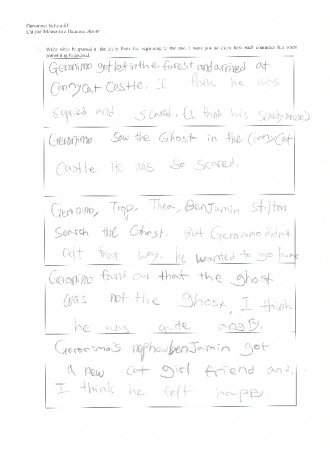 Geronimo Stilton #3
Cat and Mouse in a Haunted House
Write what happened in the story from the beginning to the end. I want you to show how each character felt when
something happened.
Geronimo got lost in the forest and arrived at
Cannycat Castle. I think he was
supried and scared. (I think his scaredymouse)
Geronimo saw the Ghost in the CannyCat
Castle He was so scared.
Geronimo, Trap, Thea, Benjamin stilton
Search the Ghost. But Geronimo didn't
felt that way. he wanted to go home
Geronimo found out that the ghost
was not the ghost, I think
he was quite angry.
Geronimo's nephew benjamin got
a new cat girl friend and.
I think he felt happy.